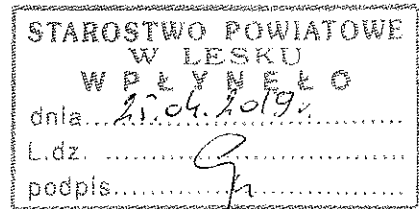 STAROSTWO POWIATOWE
W LESKU
WPŁYNĘŁO
dnia 25.04.2019r.
L.dz.
podpis